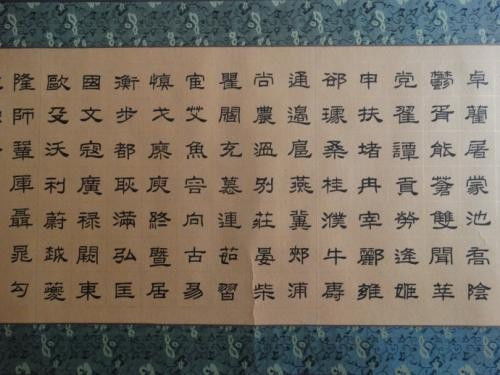 卓藺屠蒙池喬陰
鬱胥能蒼雙聞莘
党翟譚貢勞逄姬
申扶堵冉宰酈雍
郤璩桑桂濮牛壽
通邊扈燕冀郟浦
尚農温别莊晏柴
瞿閻充慕連茹習
宦艾魚容向古易
慎戈廖庾終暨居
衡步都耿滿弘匡
國文寇廣禄闕東
歐殳沃利蔚越夔
隆師鞏厙聶晁勾